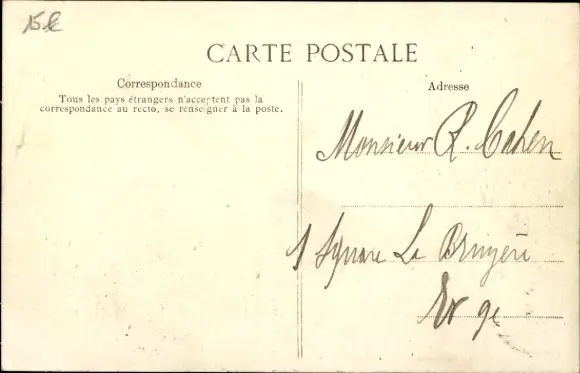 15 k
CARTE POSTALE
Correspondance
Tous les pays étrangers n'acceptent pas la
correspondance au recto, se renseigner à la poste.
Adresse
Monsieur R. Cahen
1 Square La Bruyère